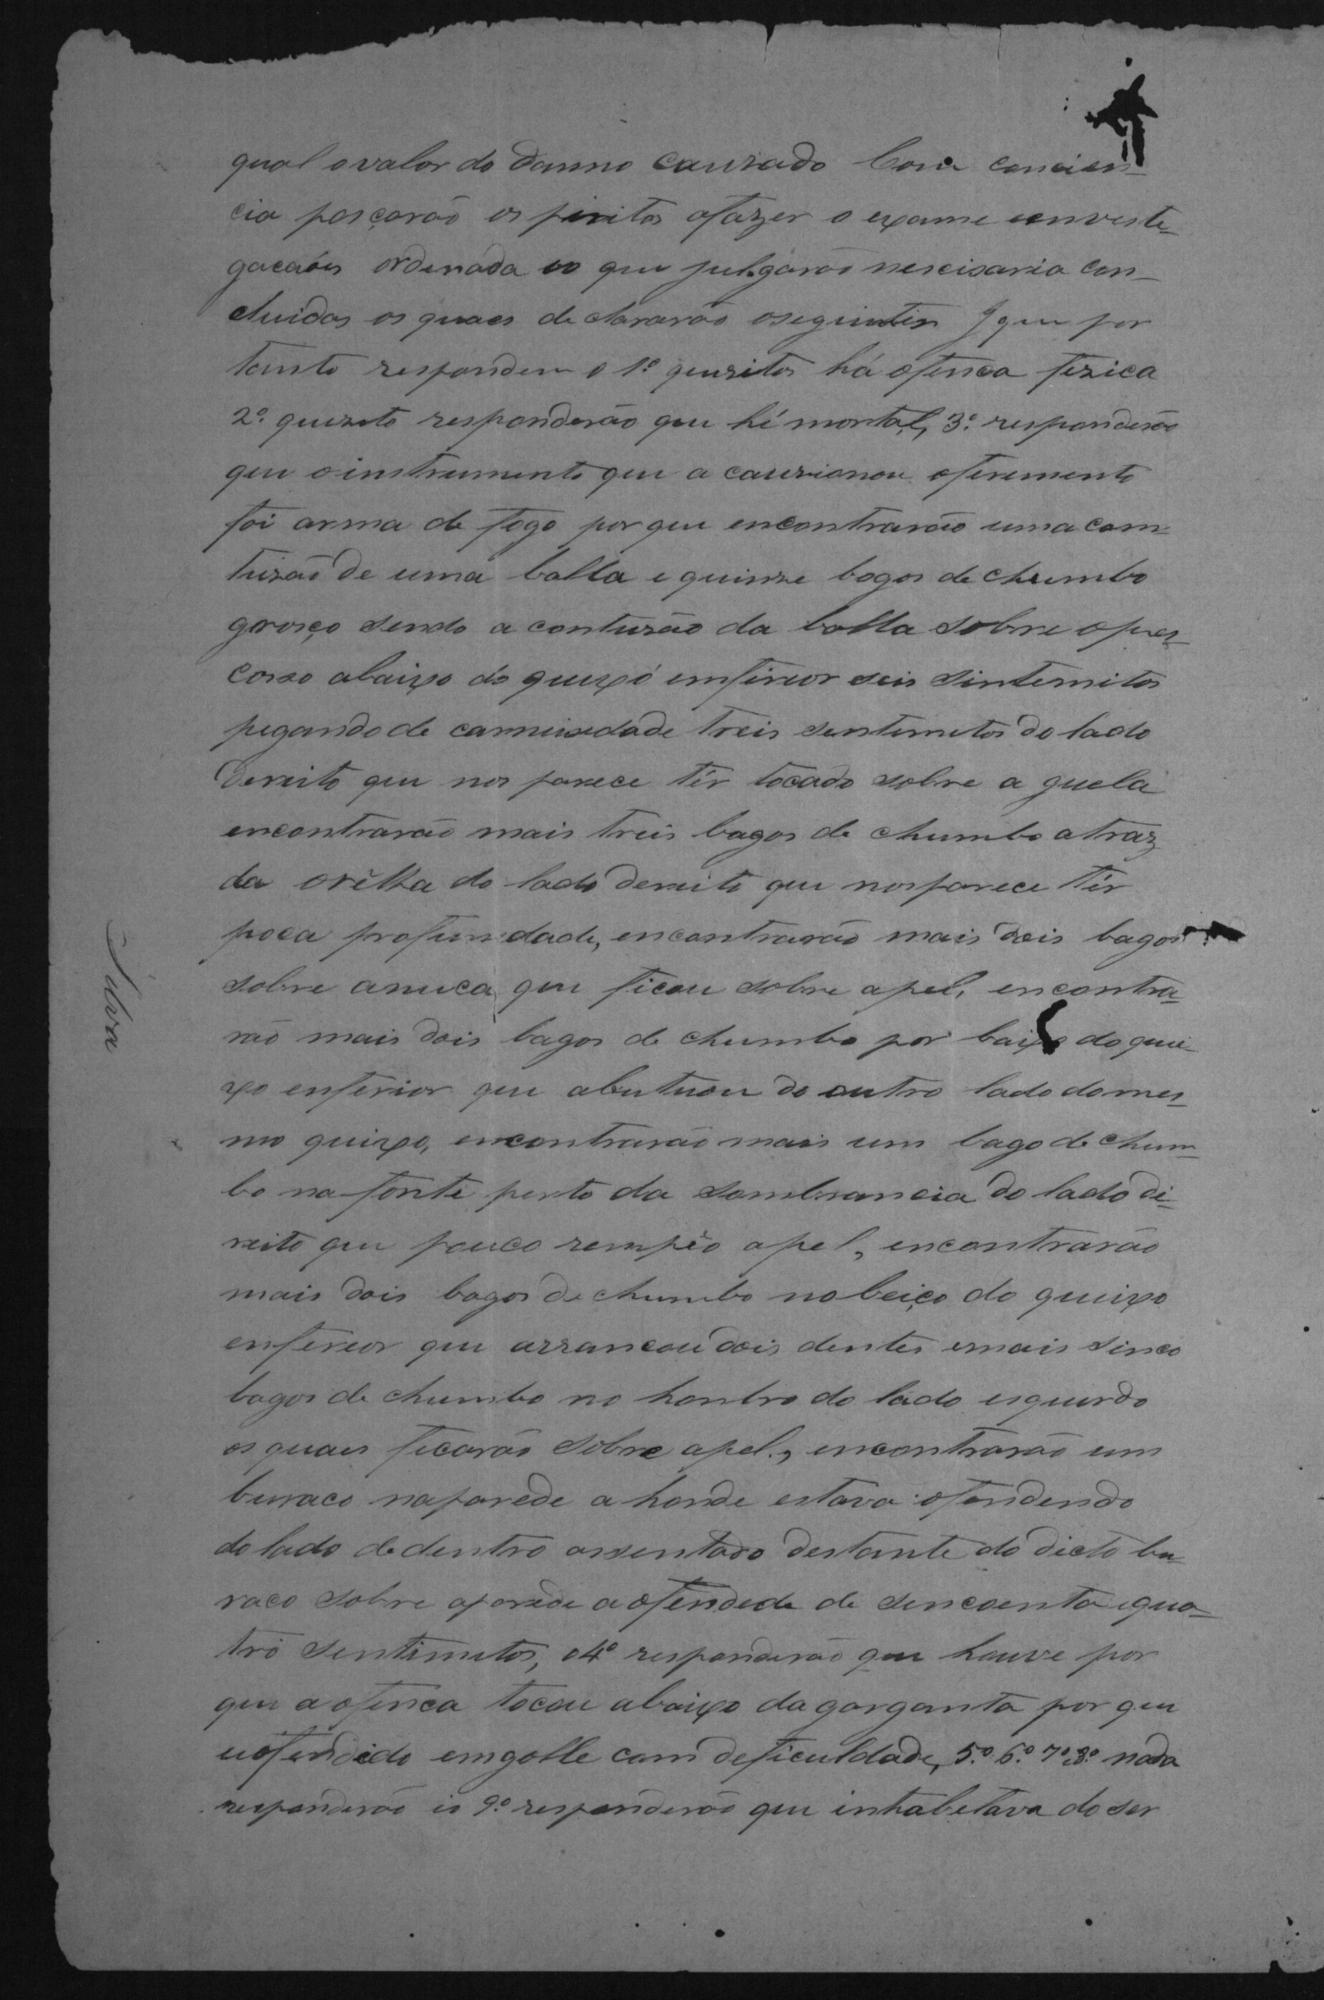 qual o valor do damno cauzado Com concien-
cia pasçarão os piritos afazer o exame enveste-
gacaões ordenada eo que julgárão nescisaria con-
cluidas os quaes declararão oseguintes que por
tanto respondem o 1º quezitos há ofenca fezica
2º quizito responderão que hé mortal, 3º responderão
que oinstrumento que a cauzionou oferemento
foi arma de fogo por que encontrarão uma com-
tuzão de uma balla e quinze bagos de chumbo
groseo sendo a contuzão da balla sobre opes-
coso abaixo do queixo emferior seis sintemitos
pegando de comunidade treis sentimitos do lado
dereito que nos parece têr tocado sobre a guela
encontrarão mais treis bagos de chumbo atraz
da orêlha do lado dereito que nosparece têr
poca profundidade, encontrarão mais dois bagos
sobre anuca, que ficou sobre apel, encontra-
rão mais dois bagos de chumbo por baixo do quei-
xo enferior que abutuou do outro lado domes-
mo queixo, encontrarão mais um bago de chum-
bo na fonte perto da sombrancia do lado di-
reito que pouco rempêo apel, encontrarão
mais dois bagos de chumbo no beiço do queixo
enferior que arrancou dois dentes emais sinco
bagos de chumbo no hombro do lado esquerdo
os quais ficarão sobre apel, encontrarão um
buraco naparede a honde estava ofendendo
do lado dedentro assentado destante do dicto bu-
raco sobre aparede aofendeda de sencoenta equa-
tro sentimitos, o4º responderão que houve por
que a ofenca tocou abaixo da garganta por que
eofendido emgolle com deficuldade, 5º 6º 7º 8º nada
responderão io 9º responderão que inhabetava do ser
Silva